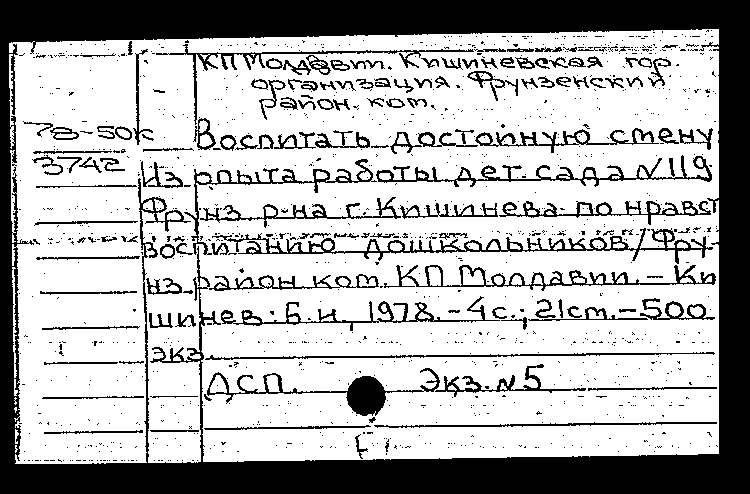 КП Молдавии. Кишиневская гор.
организация. Фрунзенский
район. ком.
78-50к
3742
Воспитать достойную смену
Из опыта работы дет. сада N 119
Фрунз. р-на г. Кишинева по нравст
воспитанию дошкольников/Фру-
нз. район ком. КП Молдавии. – Ки
шинев: Б. и., 1978. – 4 с.; 21 см. – 500
экз.
ДСП. Экз. N 5